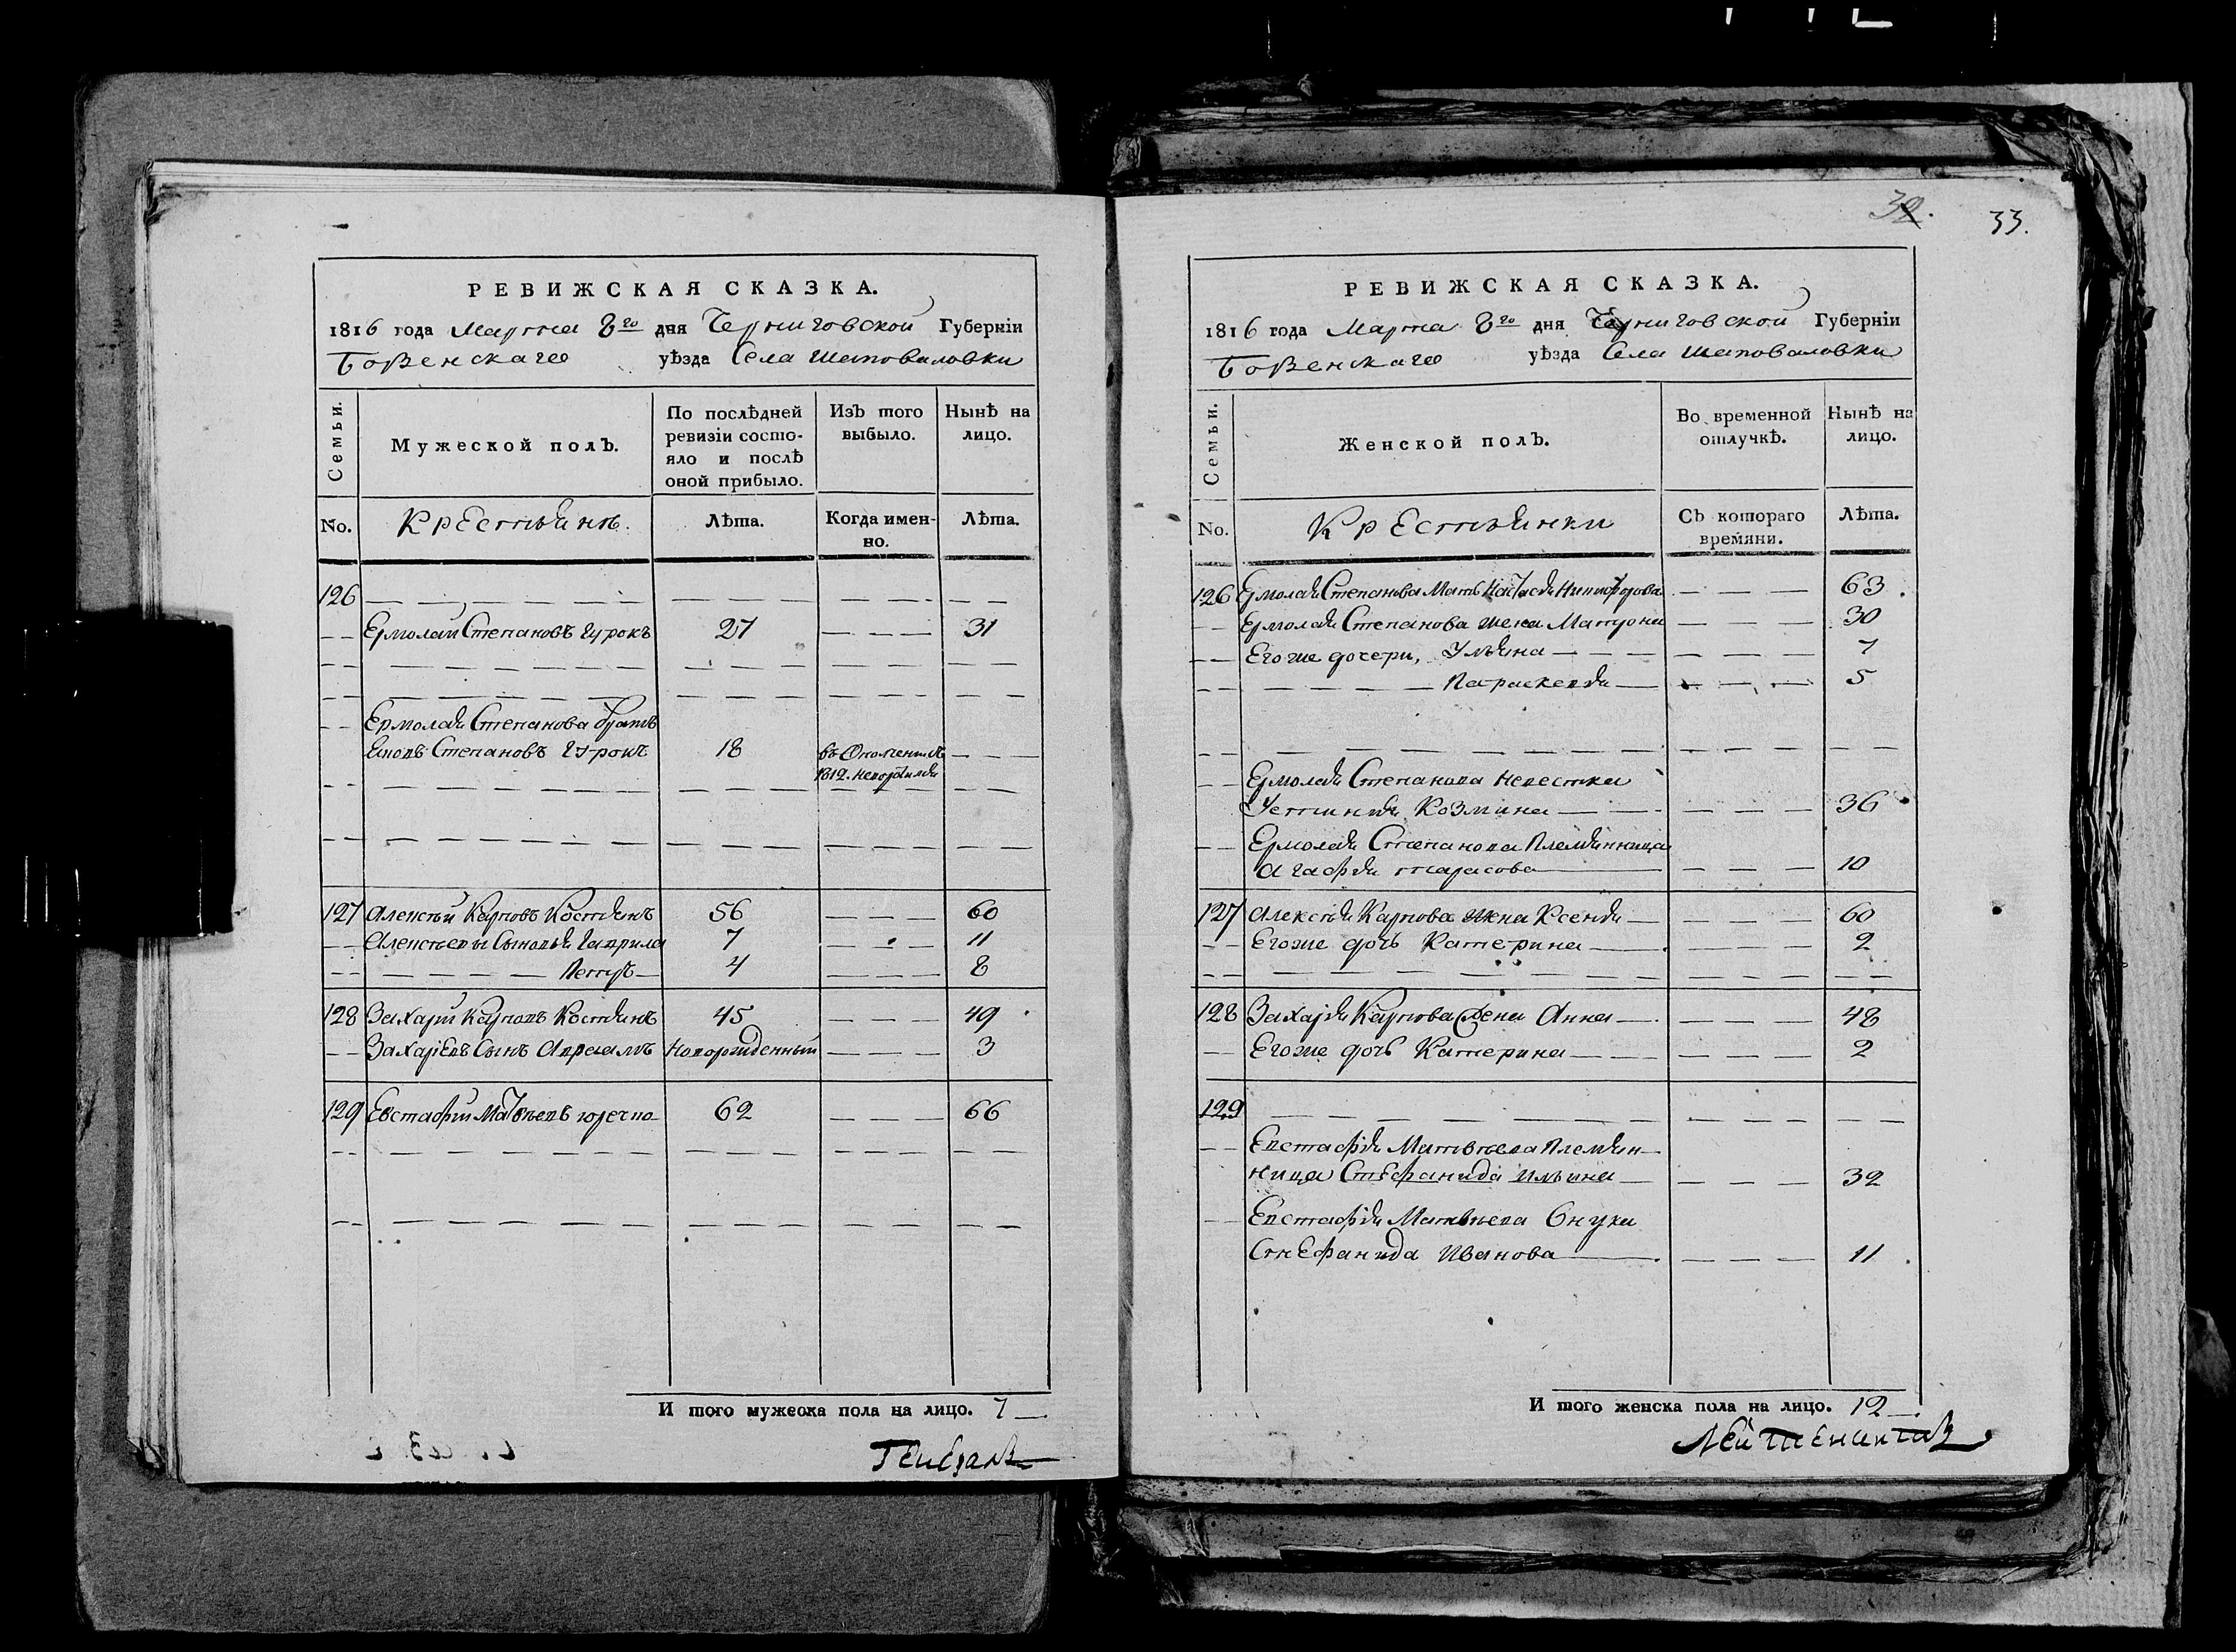 РЕВИЖСКАЯ СКАЗКА.
1816 года Марта 8го дня Черниговской Губерніи
Борзенскаго уѣзда Села Шаповаловки
Семьи.
Мужеской полъ.
По послѣдней ревизіи состо-
яло и послѣ
оной прибыло.
Изъ того выбыло.
Нынѣ на лицо.
No.
Крестьянъ.
Лѣта.
Когда имен-
но.
Лѣта.
126
Ермолай Степановъ 27 31
Ермолая Степанова братъ
Степановъ 18 въ
1812.
127 Алексѣй Карповъ Костянъ 56 60
Алексѣевы Сыновья Гаврила 7 11
Петръ 4 8
128 Захарій Карповъ Костянъ 45 49
Захаріевъ Сынъ Авраамъ новорожденный 3
129 Евстафій Матвѣевъ 62 66
И того мужеска пола на лицо. 7
32. 33.
РЕВИЖСКАЯ СКАЗКА.
1816 года Марта 8го дня Черниговской Губерніи
Борзенскаго уѣзда Села Шаповаловки
Семьи.
Женской полъ.
Во временной
отлучкѣ.
Нынѣ на
лицо.
No.
Крестьянки
Съ котораго
времяни.
Лѣта.
126 Ермолая Степанова Мать Настасія Никифорова 63
Ермолая Степанова жена Матрона 30
Егоже дочери, Ульяна 7
Параскевія 5
Ермолая Степанова Невестка
Устинія Козмина 36
Ермолая Степанова Племянница
Агафія тарасова 10
127 Алексѣя Карпова жена Ксенія 60
Егоже дочь Катерина 2
128 Захарія Карпова жена Анна 48
Егоже дочь Катерина 2
129
Евстафія Матвѣева Племян-
ница Стефанида Ильина 32
Евстафія Матвѣева Внука
Стефанида Иванова 11
И того женска пола на лицо. 12